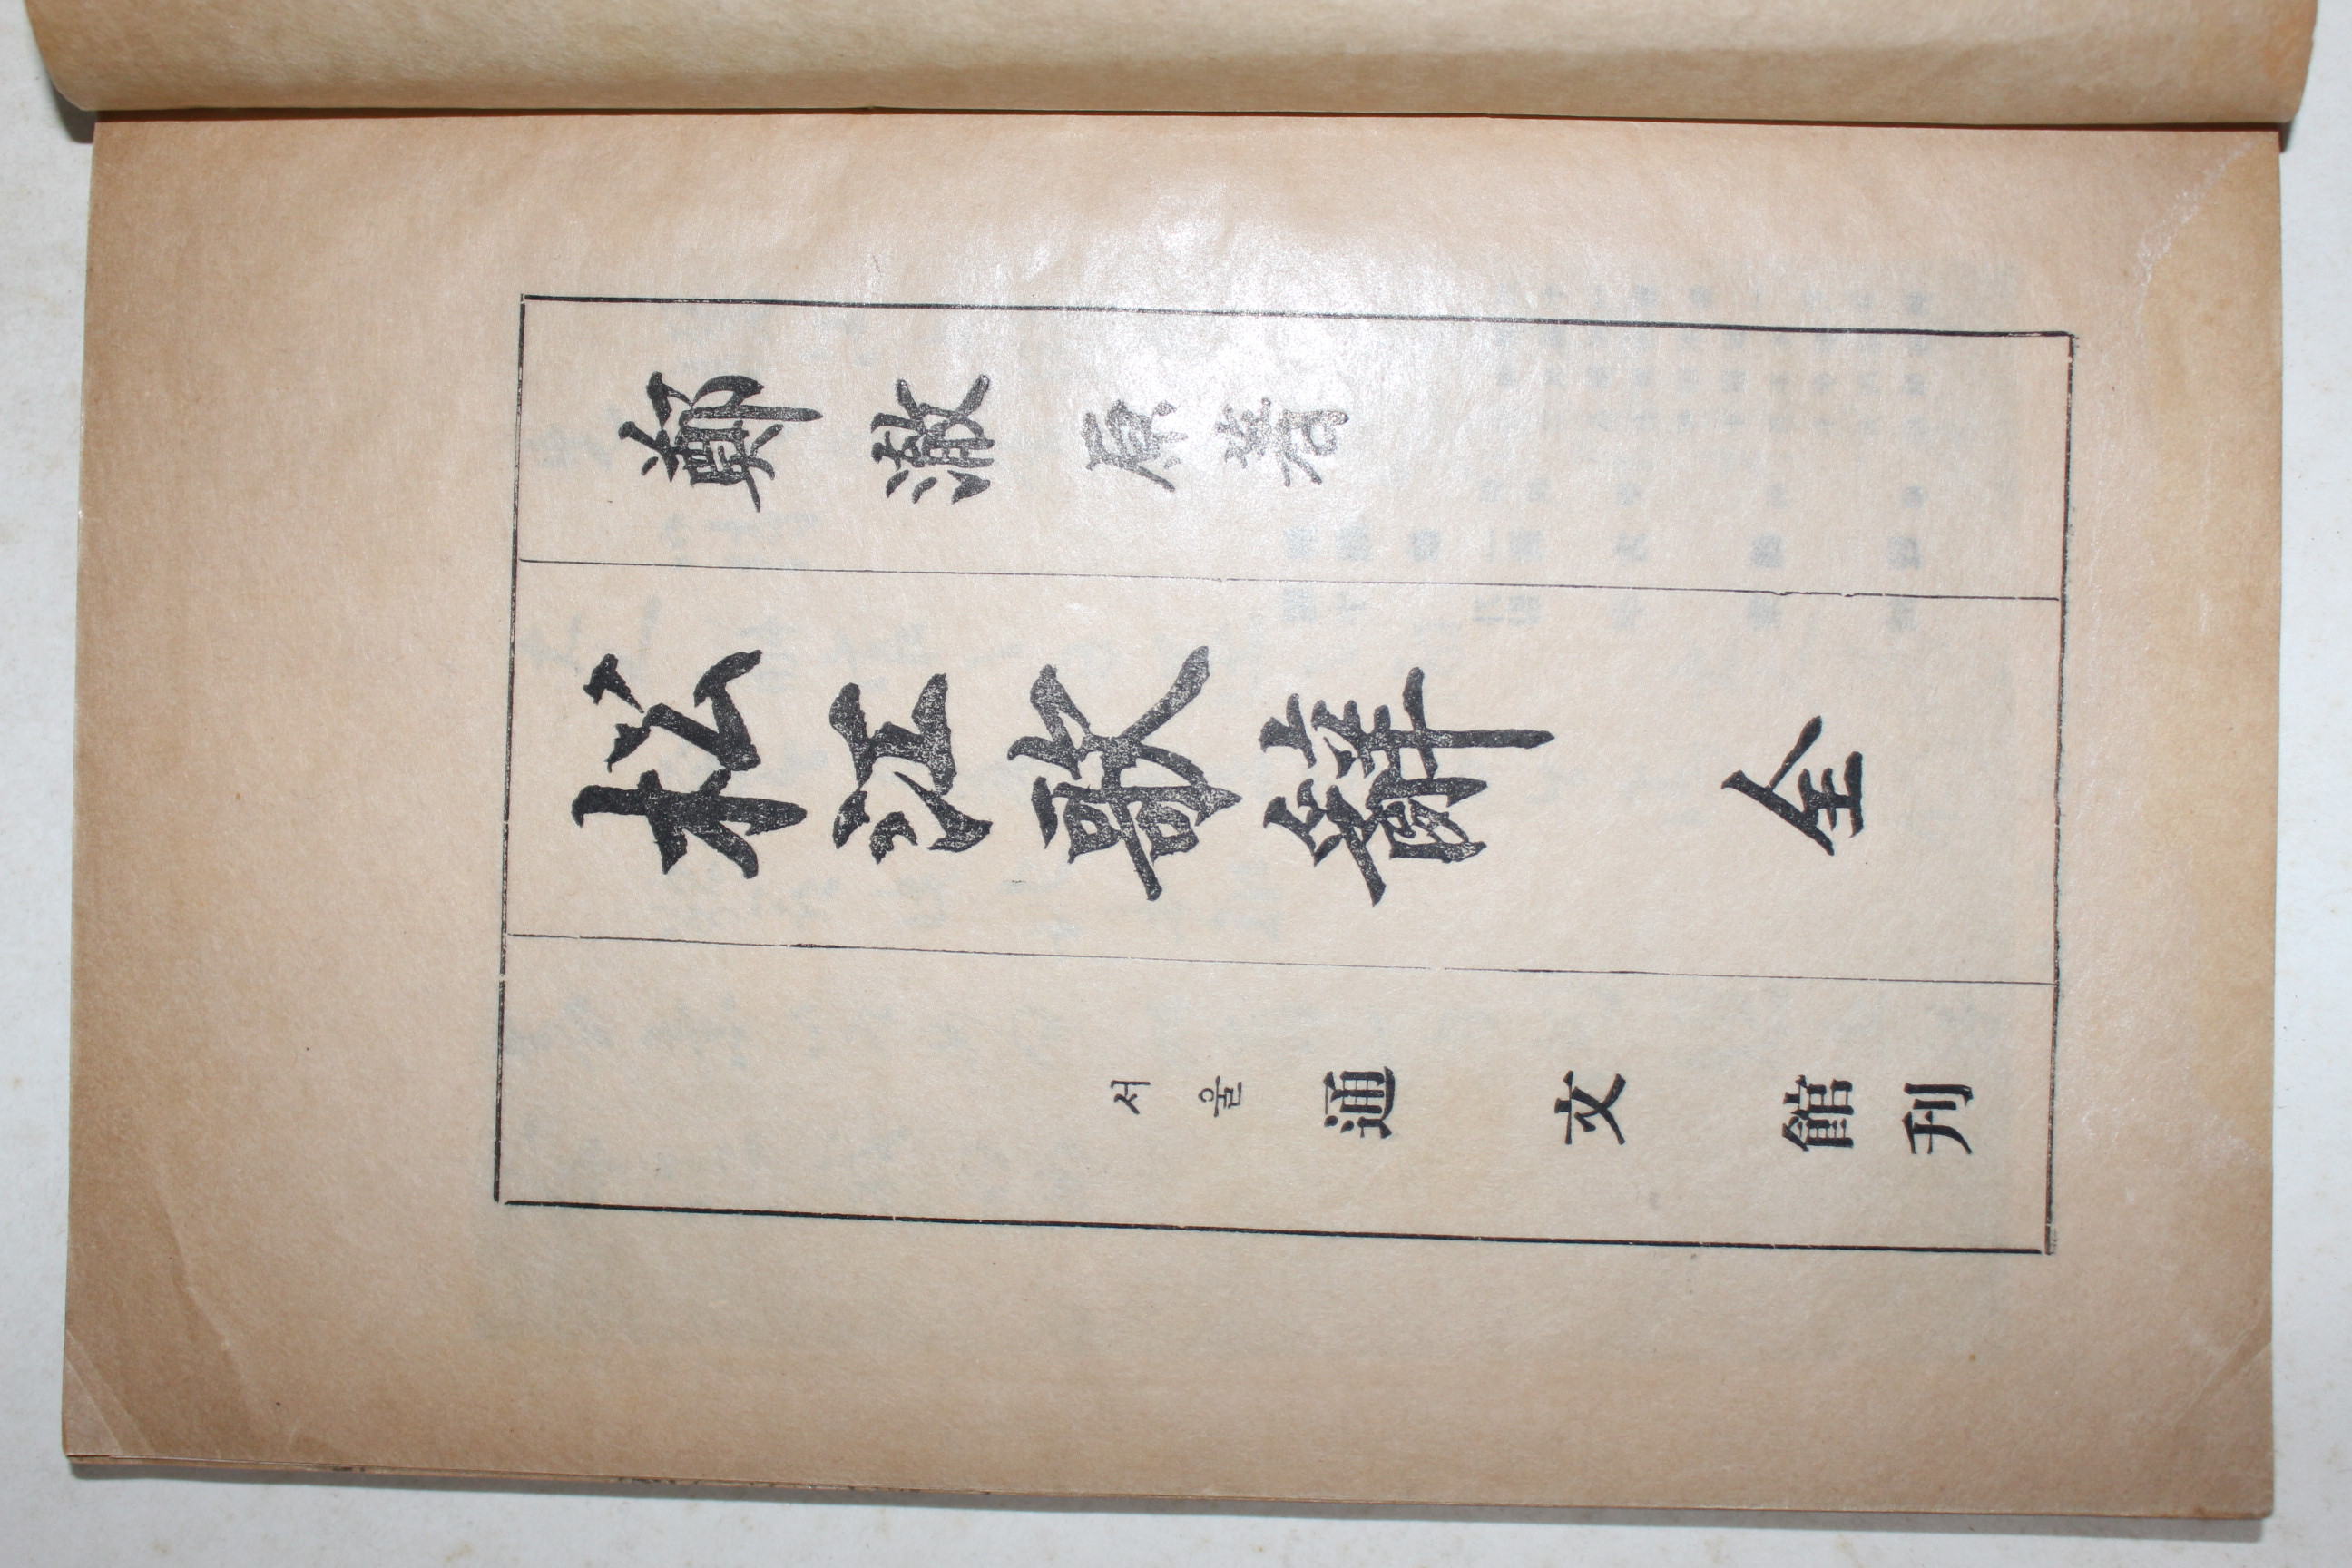 鄭澈原著
松江歌辭 全
서울 通文館刊